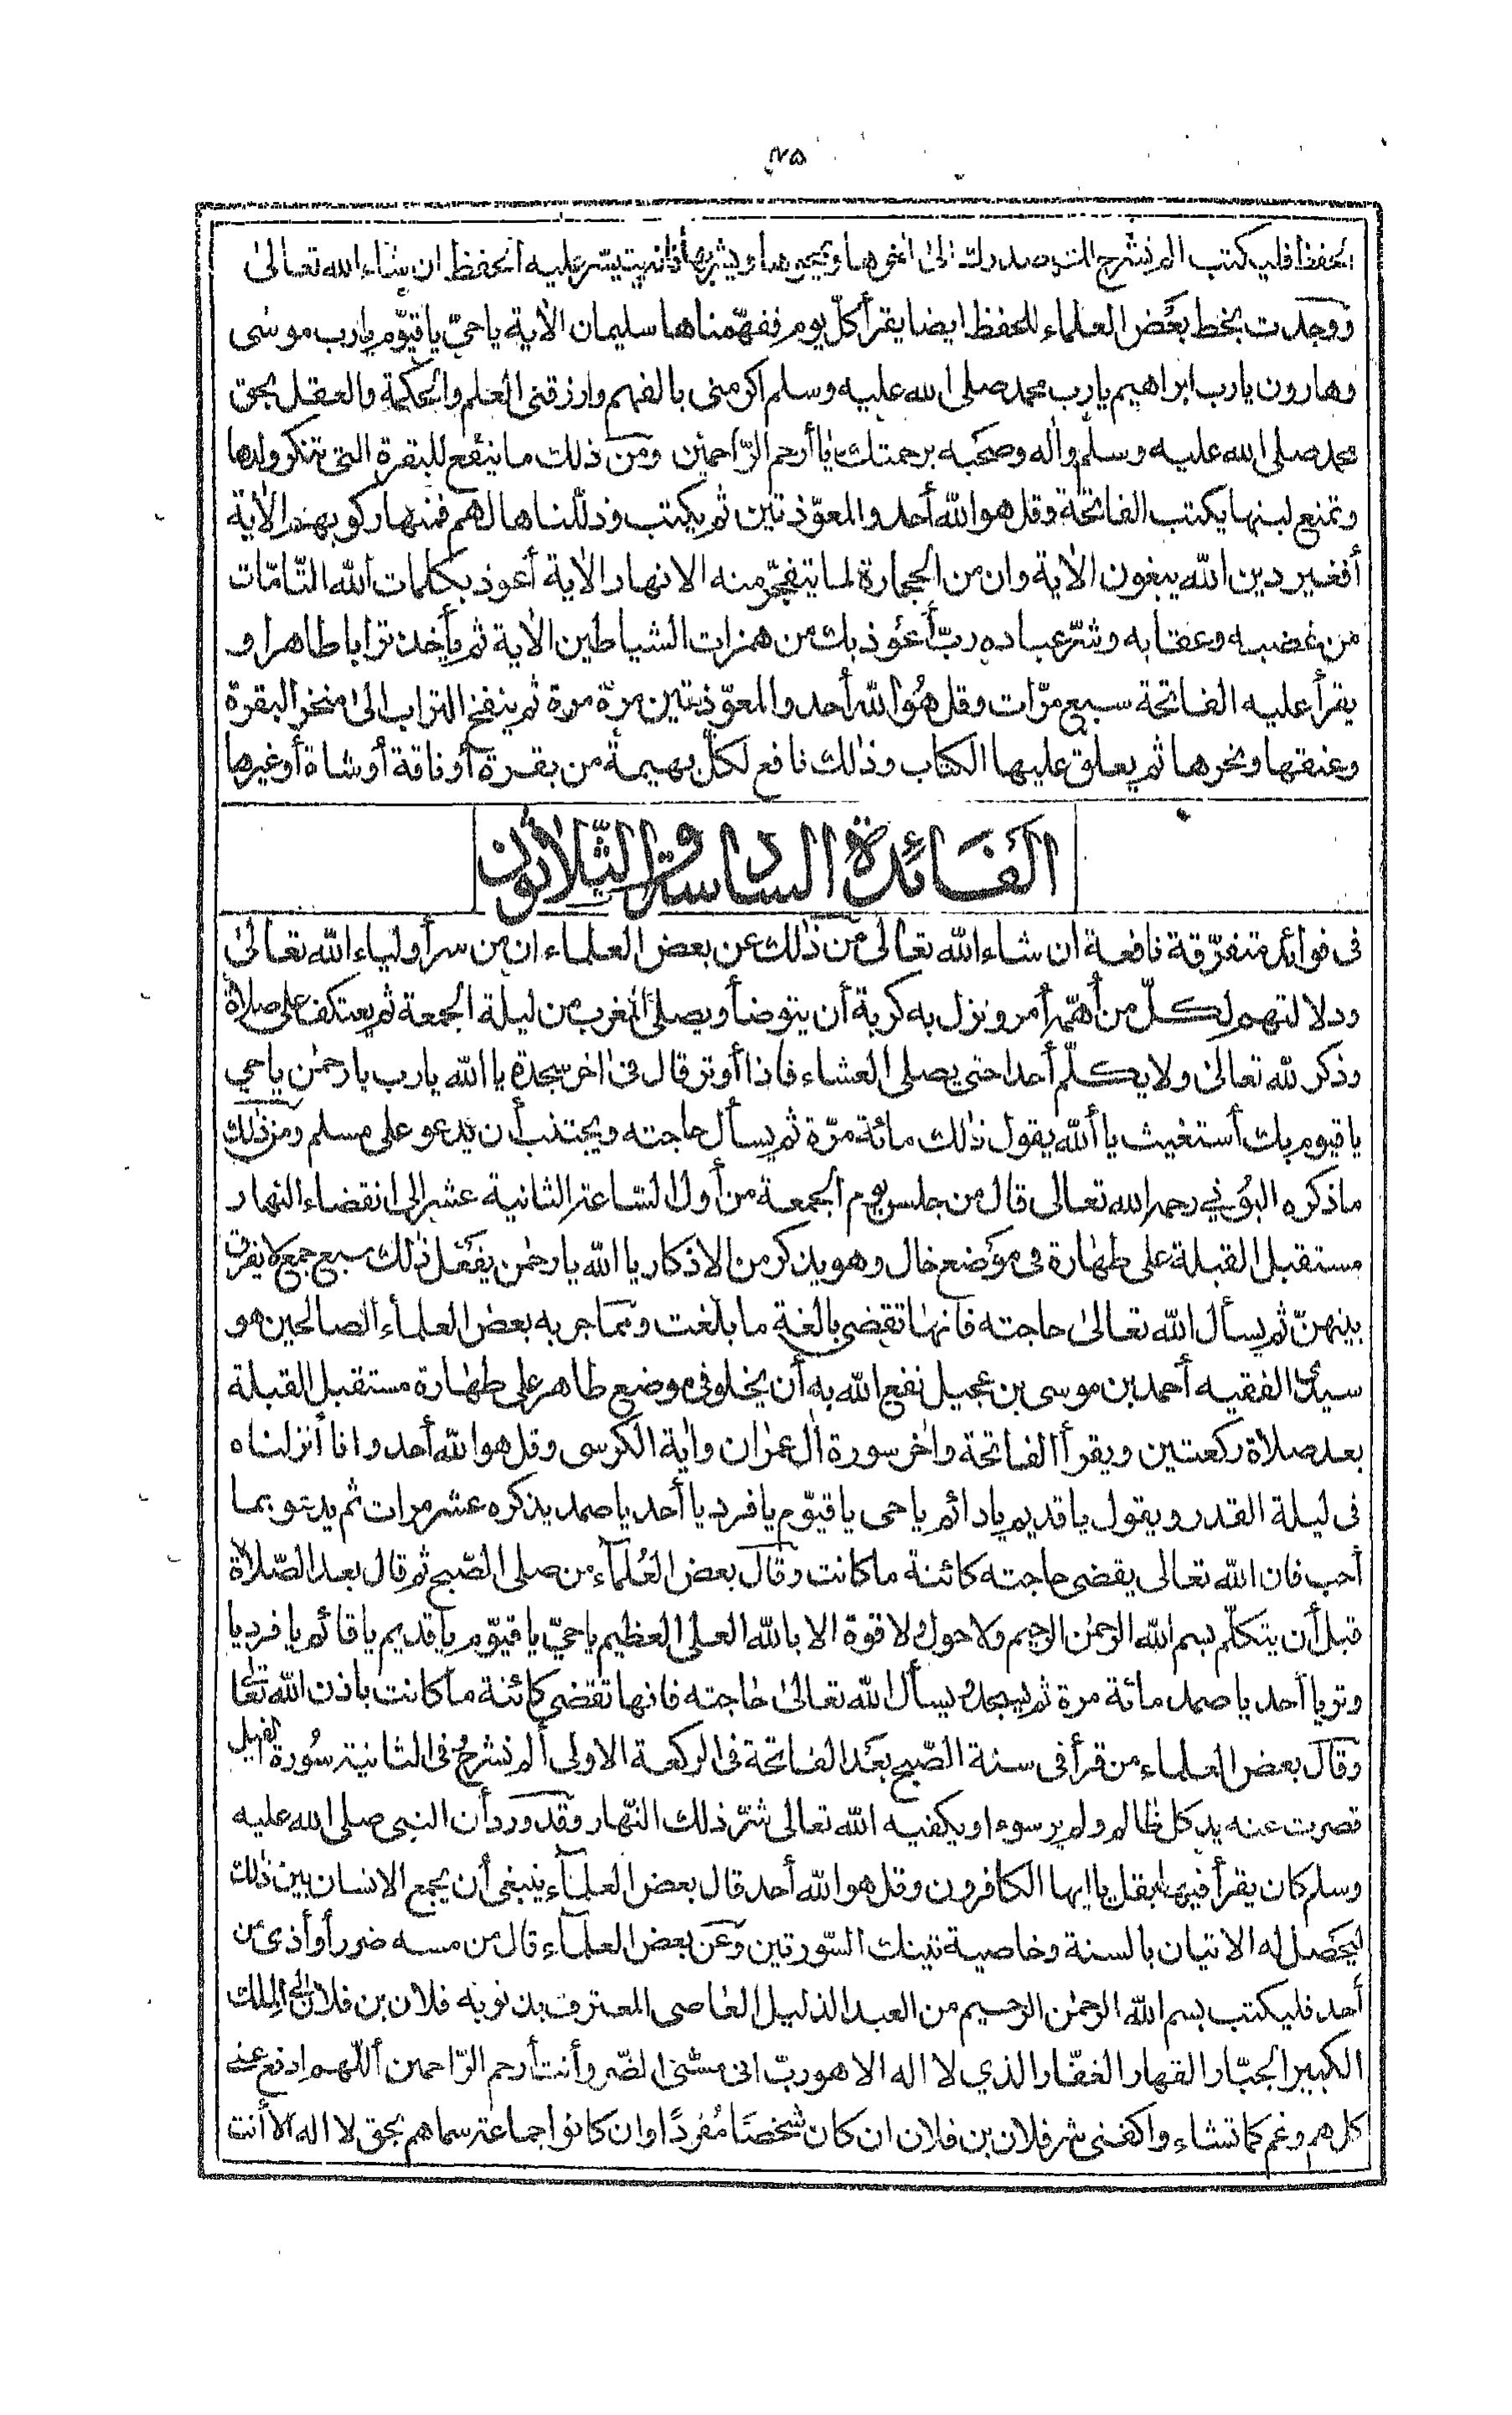 ٧٥
الحفظ فليكتب الم نشرح لك صدرك الى اخرها ويمحوها ويشربها فانه يتيسر عليه الحفظ ان شاء الله تعالىٰ
ووجدت بخط بعض العلماء للحفظ ايضا يقرأ كلّ يوم ففهّمناها سليمان الاٰية ياحيّ ياقيّوم يارب موسى
وهارون يارب ابراهيم يارب محمد صلى الله عليه وسلم اكرمنى بالفهم وارزقنى العلم والحكمة والعقل بحق
محمد صلى الله عليه وسلم واٰله وصحبه برحمتك ياأرحم الرّاحمين ومن ذلك ما ينفع للبقرة التى تنكر ولدها
وتمنع لبنها يكتب الفاتحة وقل هو الله أحد والمعوّذتين ثم يكتب وذلّلناها لهم فمنها ركوبهم الاٰية
أفغير دين الله يبغون الاٰية وان من الحجارة لما يتفجّر منه الانهار الاٰية أعوذ بكلمات الله التّامّات
من غضبه وعقابه وشرّ عباده ربّ أعوذ بك من همزات الشياطين الاٰية ثم يأخذ ترابا طاهرا و
يقرأ عليه الفاتحة سبع مرّات وقل هو الله أحد والمعوّذتين مرّة مرة ثم ينفخ التراب الىٰ منخر البقرة
وعنقها ونحرها ثم يعلق عليها الكتاب وذٰلك نافع لكلّ بهيمة من بقرة أو ناقة أو شاة أو غيرها
الفائدة السادسة والثّلاثون
فى فوائد متفرّقة نافعة ان شاء الله تعالى من ذٰلك عن بعض العلماء ان من سر أولياء الله تعالىٰ
ودلالتهم لكلّ من أهمّه أمر ونزل به كربة أن يتوضأ ويصلى المغرب من ليلة الجمعة ثم يعتكف على صلاة
وذكر لله تعالىٰ ولا يكلّم أحدا حتى يصلى العشاء فاذا أوتر قال فى اٰخر سجدة ياالله يارب يارحمٰن ياحي
ياقيوم بك أستغيث ياألله يقول ذٰلك مائة مرّة ثم يسأل حاجته ويجتنب أن يدعو على مسلم ومن ذٰلك
ماذكره البوني رحمه الله تعالى قال من جلس يوم الجمعة من أول الساعة الثانية عشر الى انقضاء النهار
مستقبل القبلة على طهارة فى موضع خال وهو يذكر من الاذكار ياالله يارحمٰن يفعل ذٰلك سبع جمع لا يفرق
بينهنّ ثم يسأل الله تعالىٰ حاجته فانها تقضى بالغة ما بلغت ومما جربه بعض العلماء الصالحين هو
سيدنا الفقيه أحمد بن موسى بن عجيل نفع الله به أن يخلو فى موضع طاهر على طهارة مستقبل القبلة
بعد صلاة ركعتين ويقرأ الفاتحة واٰخر سورة اٰل عمران واٰية الكرسى وقل هو الله أحد وانا أنزلناه
فى ليلة القدر ويقول ياقديم يادائم ياحى ياقيّوم يافرد ياأحد ياصمد يذكره عشر مرات ثم يدعو بما
أحب فان الله تعالى يقضى حاجته كائنة ما كانت وقال بعض العلماء من صلى الصّبح ثم قال بعد الصّلاة
قبل أن يتكلّم بسم الله الرحمٰن الرحيم ولا حول ولا قوة الا بالله العلى العظيم ياحيّ ياقيّوم ياقديم ياقائم يافرد يا
وتر ياأحد ياصمد مائة مرة ثم يسجد ويسأل الله تعالىٰ حاجته فانها تقضى كائنة ما كانت باذن الله تعالى
وقال بعض العلماء من قرأ فى سنة الصّبح بعد الفاتحة فى الركعة الاولى ألم نشرح وفى الثانية سورة الفيل
قصرت عنه يد كل ظالم ولم ير سوءا ويكفيه الله تعالى شرّ ذلك النهار وقد ورد أن النبى صلى الله عليه
وسلم كان يقرأ فيها بقل ياايها الكافرون وقل هو الله أحد قال بعض العلماء ينبغى أن يجمع الانسان بين ذلك
ليحصل له الاتيان بالسنة وخاصية تينك السّورتين وعن بعض العلماء قال من مسه ضر أو أذى من
أحد فليكتب بسم الله الرحمٰن الرحيم من العبد الذليل العاصى المعترف بذنوبه فلان بن فلان الى الملك
الكبير الجبّار القهار الغفّار الذي لا اله الا هو ربّ انى مسّنى الضّر وأنت أرحم الرّاحمين أللّهم ادفع عنى
كل هم وغم كما تشاء واكفنى شر فلان بن فلان ان كان شخصًا مُفردًا وان كانوا جماعة سماهم بحق لا اله الا أنت